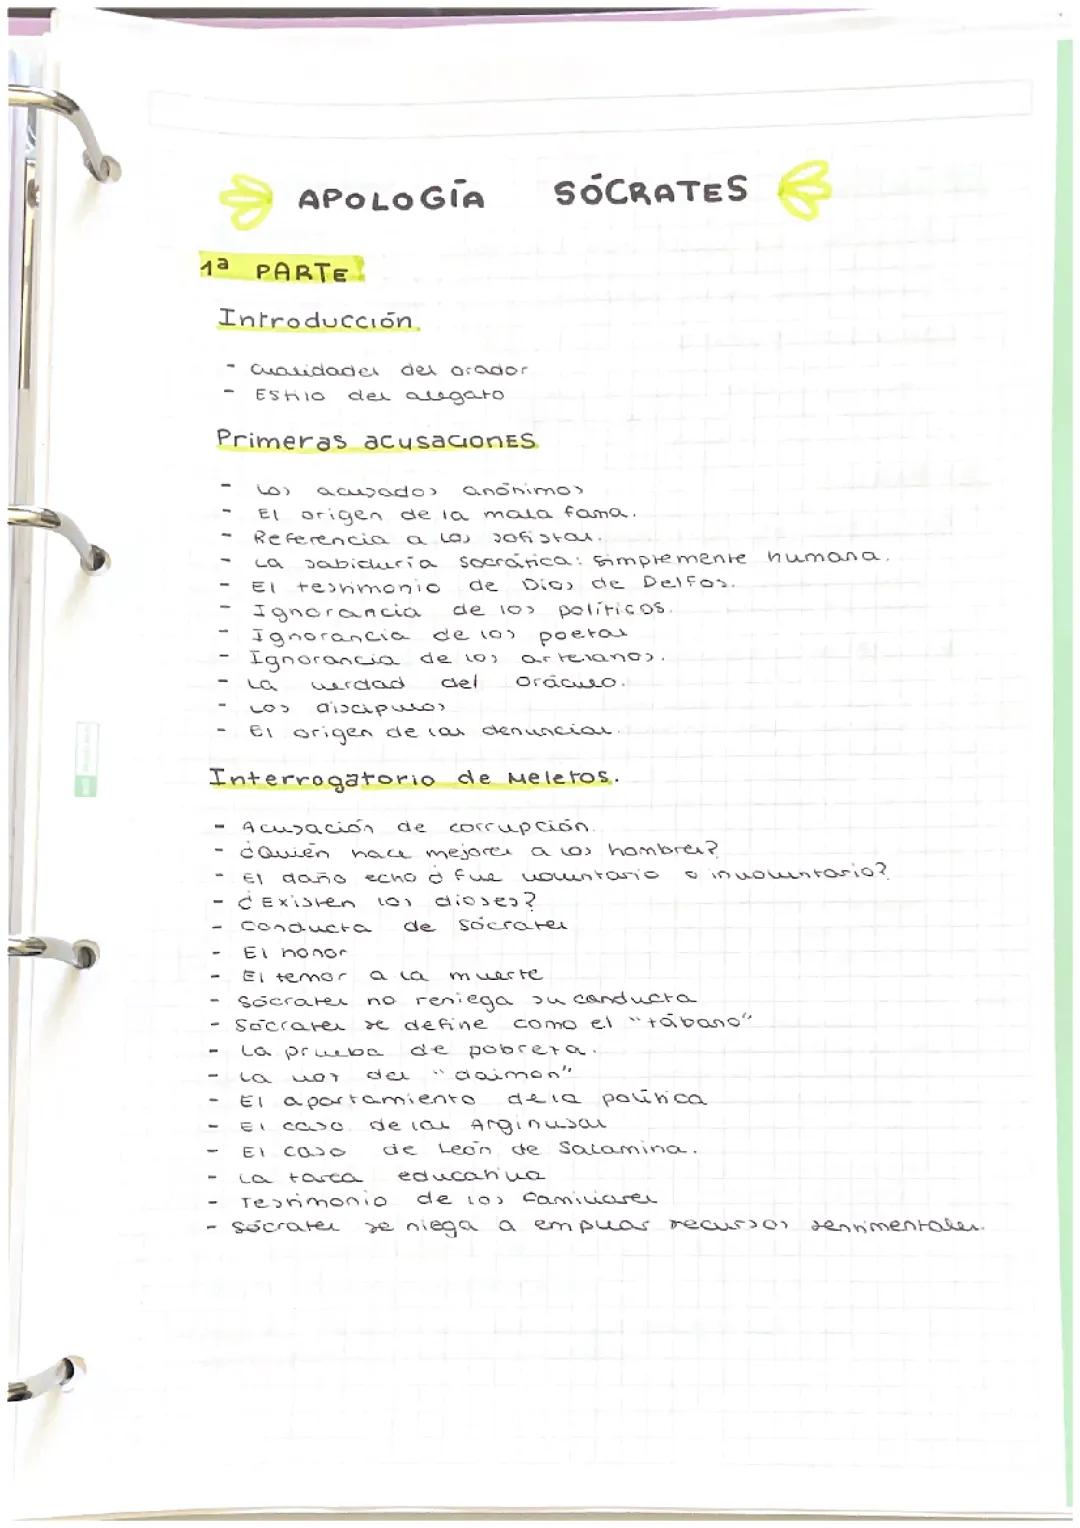 APOLOGÍA SÓCRATES
1ª PARTE
Introducción.
- Cualidades del orador
- Estilo del alegato
Primeras acusaciones
- Los acusados anónimos
- El origen de la mala fama.
- Referencia a los sofistas.
- La sabiduría Socrática: simplemente humana.
- El testimonio de Dios de Delfos.
- Ignorancia de los políticos.
- Ignorancia de los poetas
- Ignorancia de los artesanos.
- La verdad del Oráculo.
- Los discípulos
- El origen de las denuncias.
Interrogatorio de Meletos.
- Acusación de corrupción.
- ¿Quién hace mejores a los hombres?
- El daño echo ¿ fue voluntario o involuntario?
- ¿Existen los dioses?
- Conducta de Sócrates
- El honor
- El temor a la muerte
- Sócrates no reniega su conducta
- Sócrates se define como el "tábano"
- La prueba de pobreza.
- La voz del "daimon"
- El apartamiento de la política
- El caso de las Arginusas
- El caso de León de Salamina.
- La tarea educativa
- Testimonio de los familiares
- Sócrates se niega a emplear recursos sentimentales.